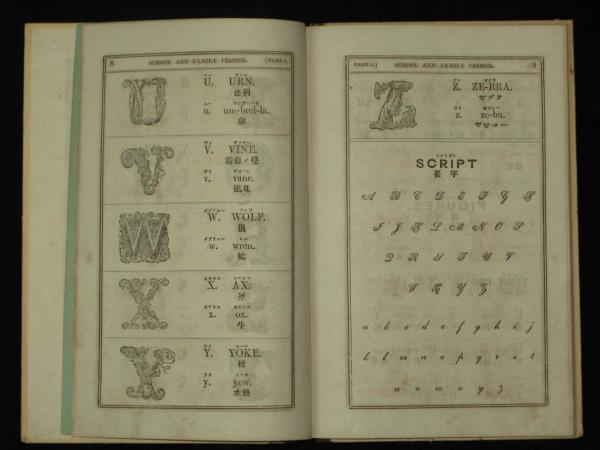 8 SCHOOL AND FAMILY PRIMER. [PART I.
U. URN.
徳利
u. um-brel-la.
傘
V. VINE.
葡萄ノ蔓
v. vane.
風見
W. WOLF.
狼
w. wren.
X. AX.
斧
x. ox.
牛
Y. YOKE.
軛
y. yew.
水松
PART I.] SCHOOL AND FAMILY PRIMER. 9
Z. ZE-BRA.
セブラ
z. ze-bu.
セビュー
SCRIPT
A B C D E F G H
I J K L M N O P
Q R S T U V
W X Y Z
a b c d e f g h i j
k l m n o p q r s t
u v w x y z